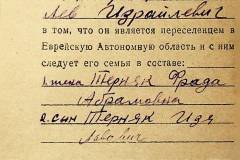 Лев Израйлевич
в том, что он является переселенцем в
Еврейскую Автономную область и с ним
следует его семья в составе:
1. жена Терняк Фрада
Абрамовна
2. сын Терняк Изя
Львович